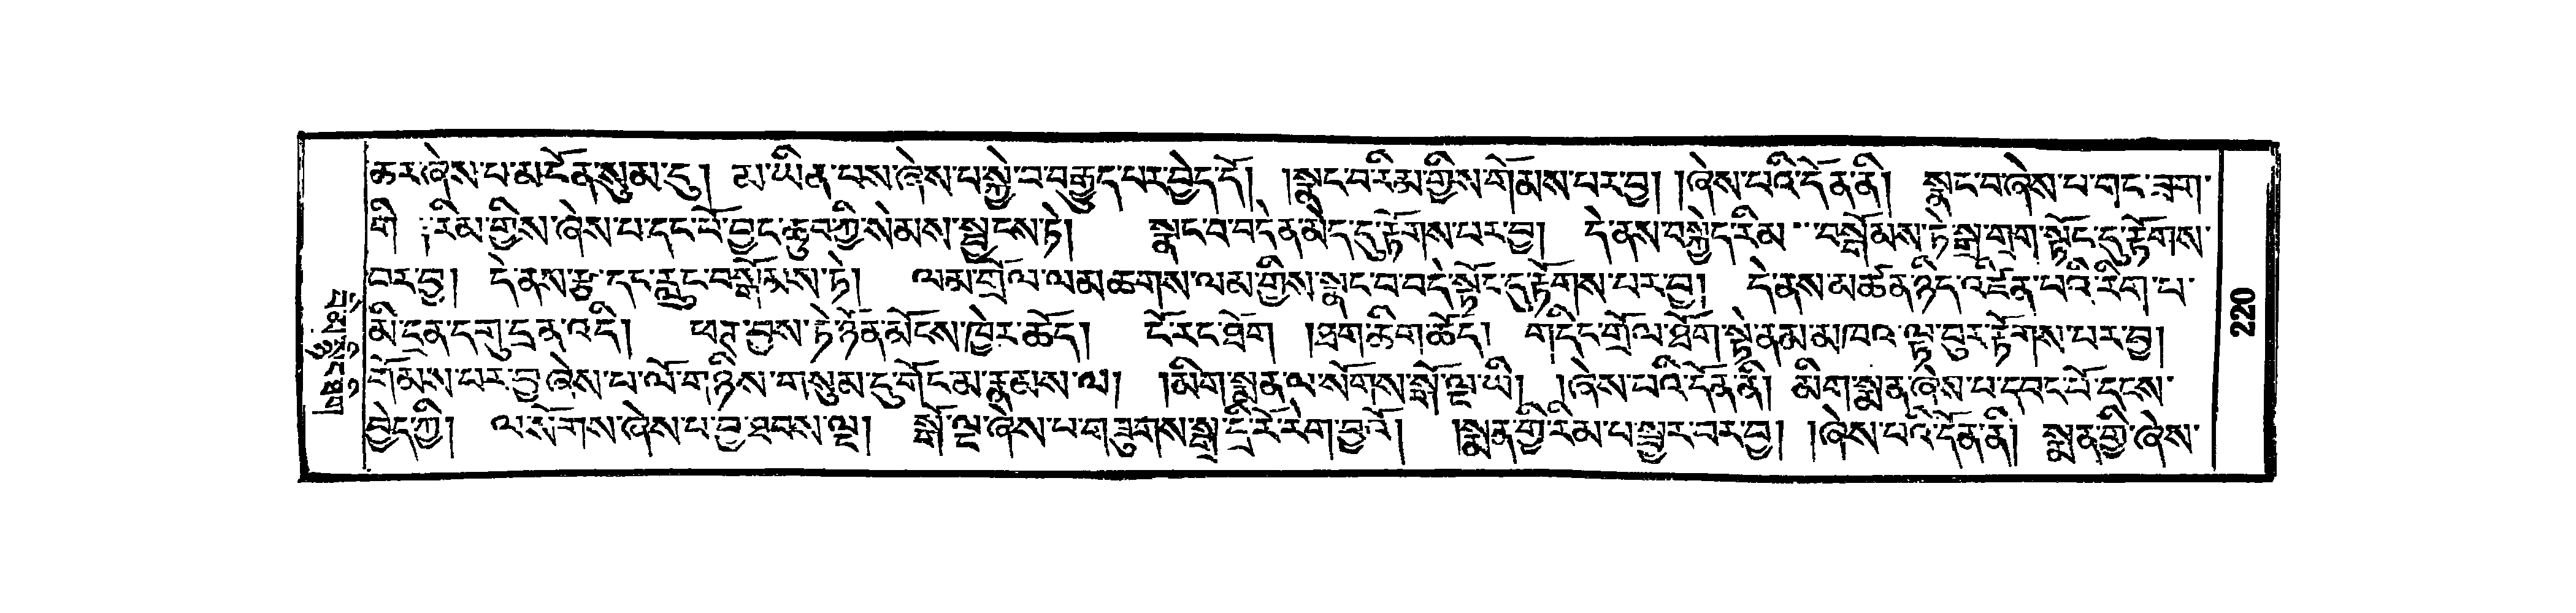 ཆར་ཞེས་པ་མངོན་སུམ་དུ། མ་ཡིན་པས་ཞེས་པ་སྐྱེ་བ་བརྒྱུད་པར་བྱེད་དོ། །སྣང་བ་རིམ་གྱིས་གོམས་པར་བྱ། །ཞེས་པའི་དོན་ནི། སྣང་བ་ཞེས་པ་གང་ཟག་
གི རིམ་གྱིས་ཞེས་པ་དང་པོ་བྱང་ཆུབ་ཀྱི་སེམས་སྦྱངས་ཏེ། སྣང་བ་བདེན་མེད་དུ་རྟོགས་པར་བྱ། དེ་ནས་བསྐྱེད་རིམ་བསྒོམས་ཏེ་སྒྲ་གྲག་སྟོང་དུ་རྟོགས་
པར་བྱ། དེ་ནས་རྩ་དང་རླུང་བསྒོམས་ཏེ། ལམ་གྲོལ་ལམ་ཆགས་ལམ་གྱིས་སྣང་བ་བདེ་སྟོང་དུ་རྟོགས་པར་བྱ། དེ་ནས་མཚན་ཉིད་འཛིན་པའི་རིག་པ་
མི་དྲན་དགུ་དྲན་འདི། ཕཊ་བྱས་ཏེ་ཉོན་མོངས་ཁྱེར་ཆོད། ངོ་རང་ཐེག །ཐག་ཅིག་ཆོད། གདིང་གྲོལ་ཐོག་སྟེ་ནམ་མཁའ་ལྟ་བུར་རྟོགས་པར་བྱ།
གོམས་པར་བྱ་ཞེས་པ་ལོ་གཉིས་གསུམ་དུ་གོང་མ་རྣམས་ལ། །མིག་སྨན་ལ་སོགས་སྒོ་ལྔ་ཡི། །ཞེས་པའི་དོན་ནི། མིག་སྨན་ཞེས་པ་དབང་པོ་དྭངས་
བྱེད་ཀྱི། ལ་སོགས་ཞེས་པ་བྱ་ཐབས་ལྔ། སྒོ་ལྔ་ཞེས་པ་གཟུགས་སྒྲ་དྲི་རོ་རེག་བྱའོ། །སྨན་གྱི་རིམ་པ་སྦྱར་བར་བྱ། །ཞེས་པའི་དོན་ནི། སྨན་གྱི་ཞེས་
220